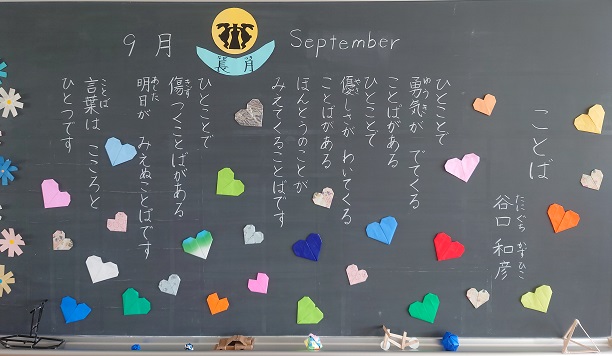 9月
長月
September
ことば
谷口 和彦
たにぐち かずひこ
ひとことで
勇気が でてくる
ゆうき
ことばがある
ひとことで
優しさが わいてくる
やさ
ことばがある
ほんとうのことが
みえてくることばです
ひとことで
傷つくことばがある
きず
明日が みえぬことばです
あした
言葉は こころと
ことば
ひとつです